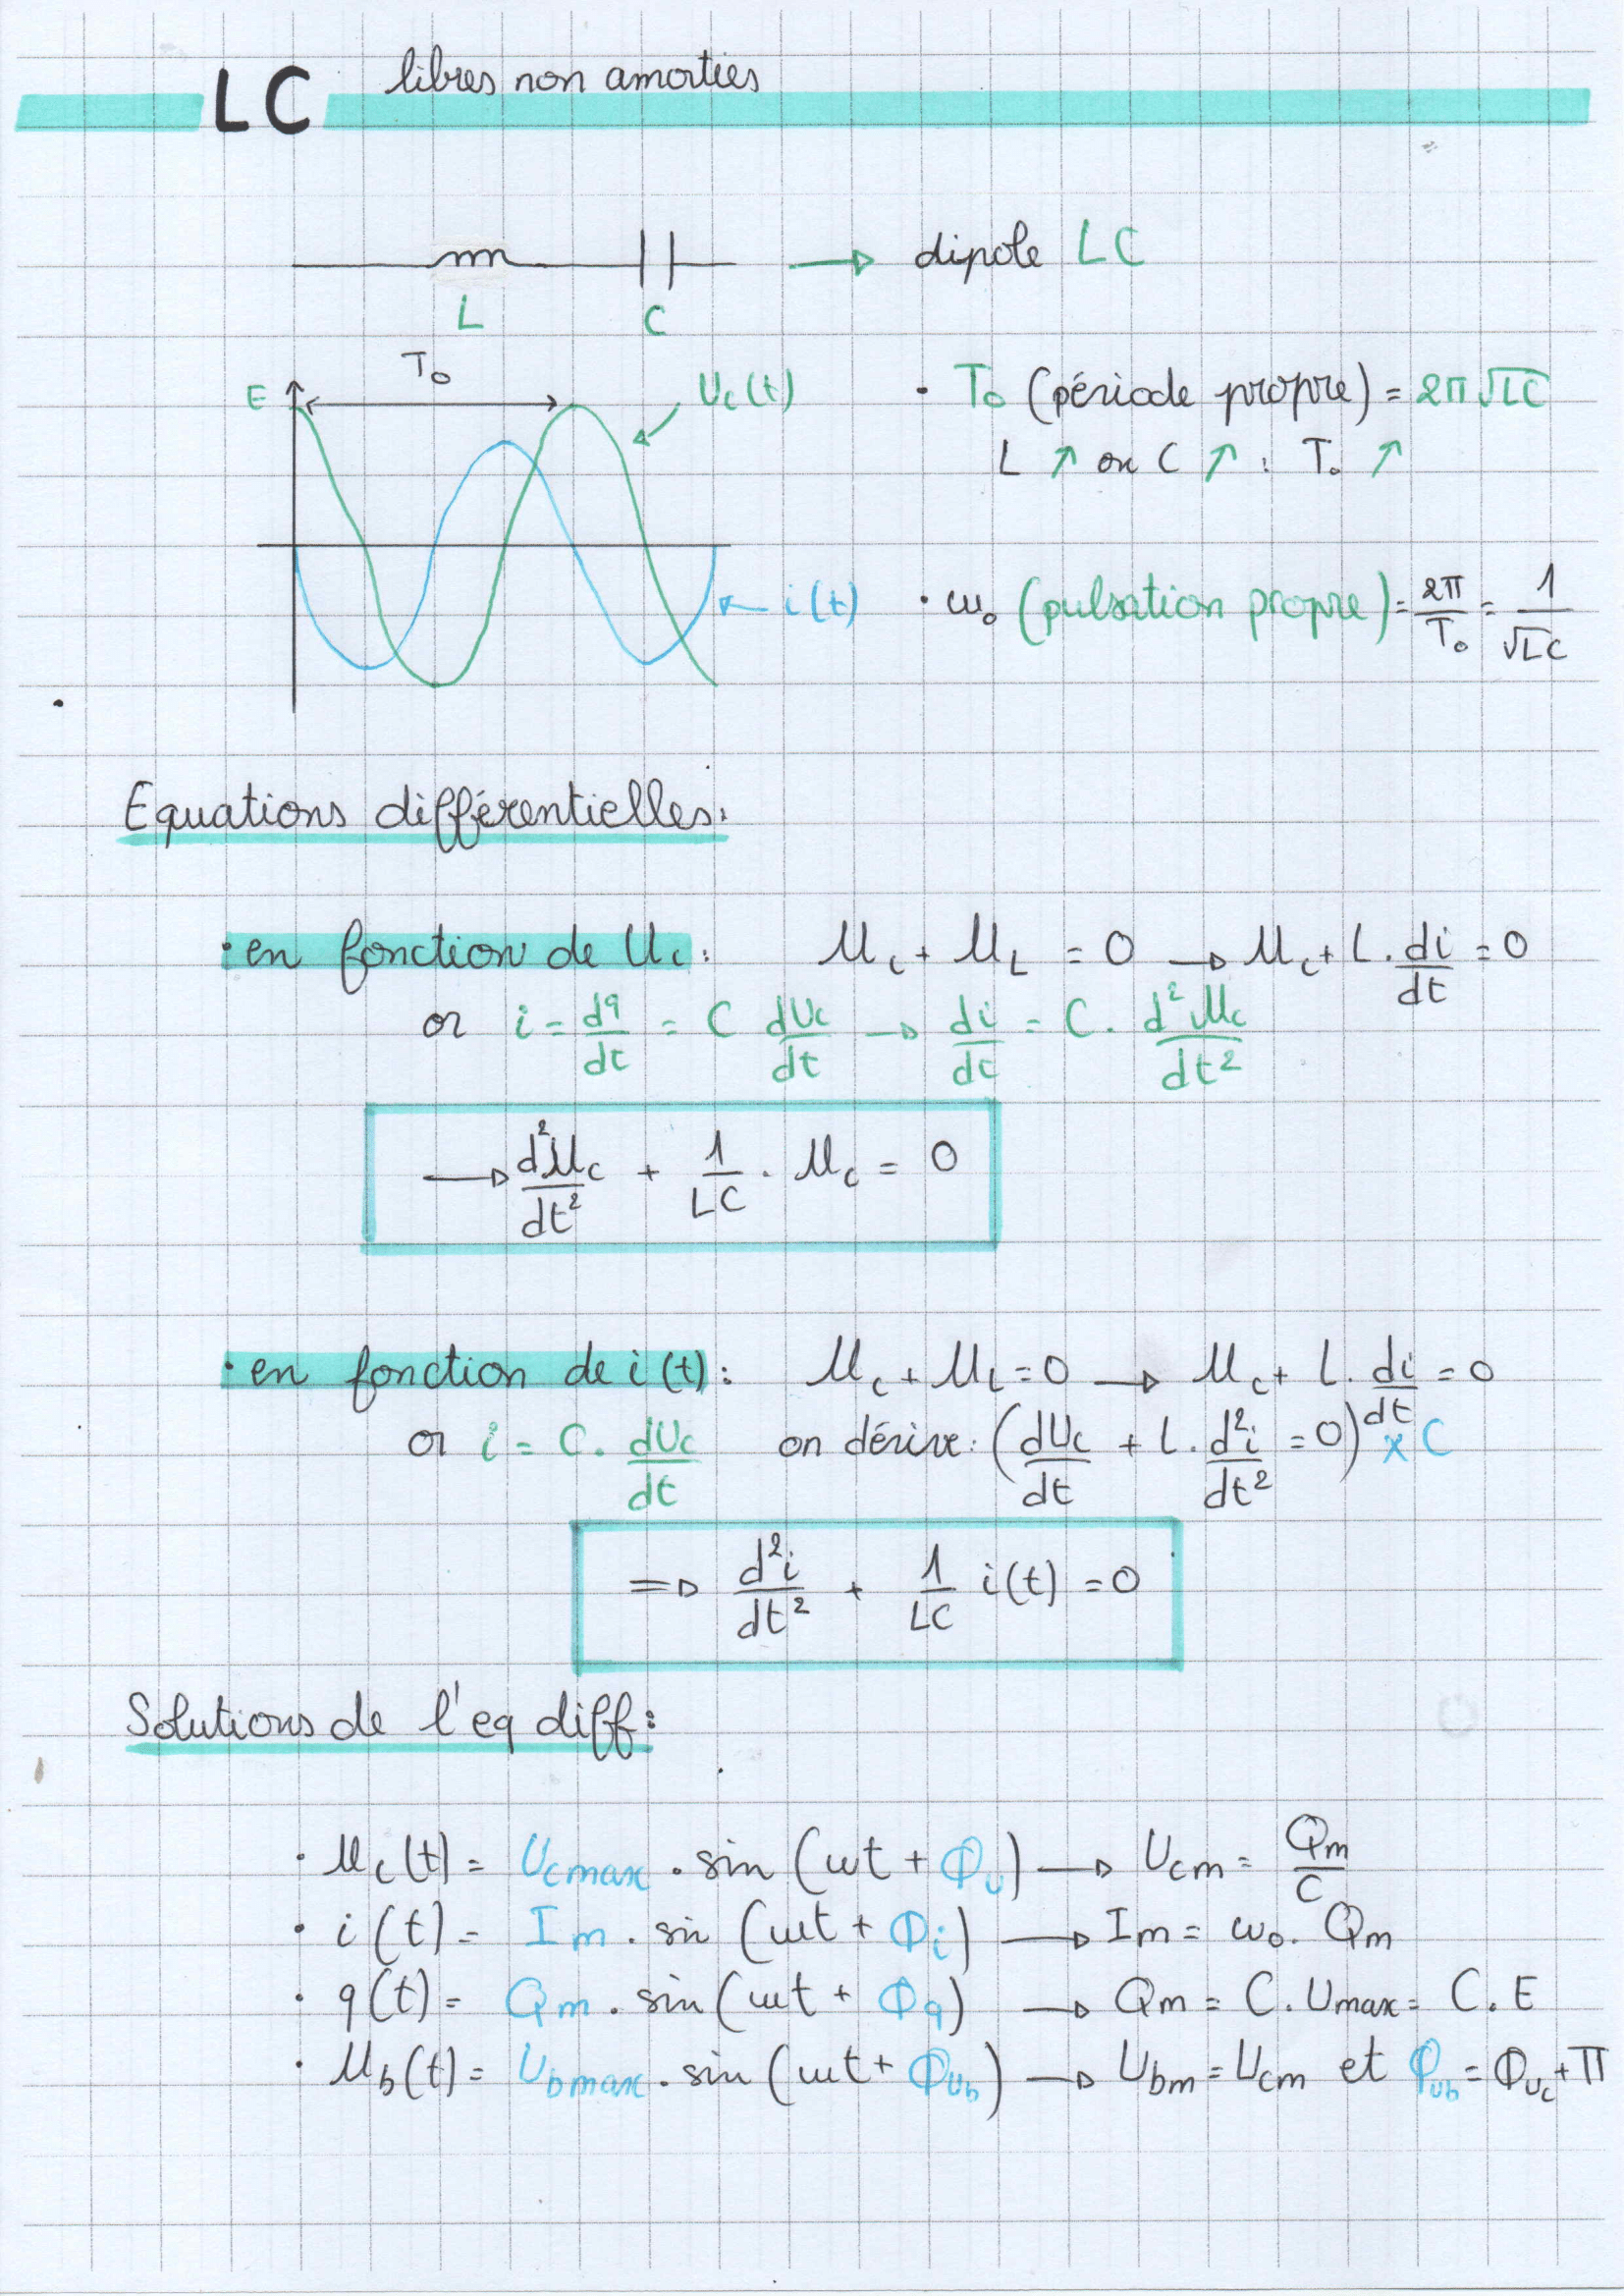 LC libres non amorties
dipole LC
L C
T₀
E
Uc(t)
• T₀ (période propre) = 2π√LC
L ↗ ou C ↗ : T₀ ↗
i(t)
• ω₀ (pulsation propre) = 2π/T₀ = 1/√LC
Equations différentielles:
• en fonction de Uc: Uc + UL = 0 → Uc + L. di/dt = 0
or i = dq/dt = C dUc/dt → di/dt = C. d²Uc/dt²
→ d²Uc/dt² + 1/LC . Uc = 0
• en fonction de i(t): Uc + UL = 0 → Uc + L. di/dt = 0
or i = C. dUc/dt on dérive: (dUc/dt + L. d²i/dt² = 0) x C
=> d²i/dt² + 1/LC i(t) = 0
Solutions de l'eq diff:
• Uc(t) = Ucmax . sin (ωt + Φu) → Ucm = Qm/C
• i(t) = Im . sin (ωt + Φi) → Im = ω₀. Qm
• q(t) = Qm . sin (ωt + Φq) → Qm = C. Umax = C. E
• Ub(t) = Ubmax . sin (ωt + Φub) → Ubm = Ucm et Φub = Φuc + π